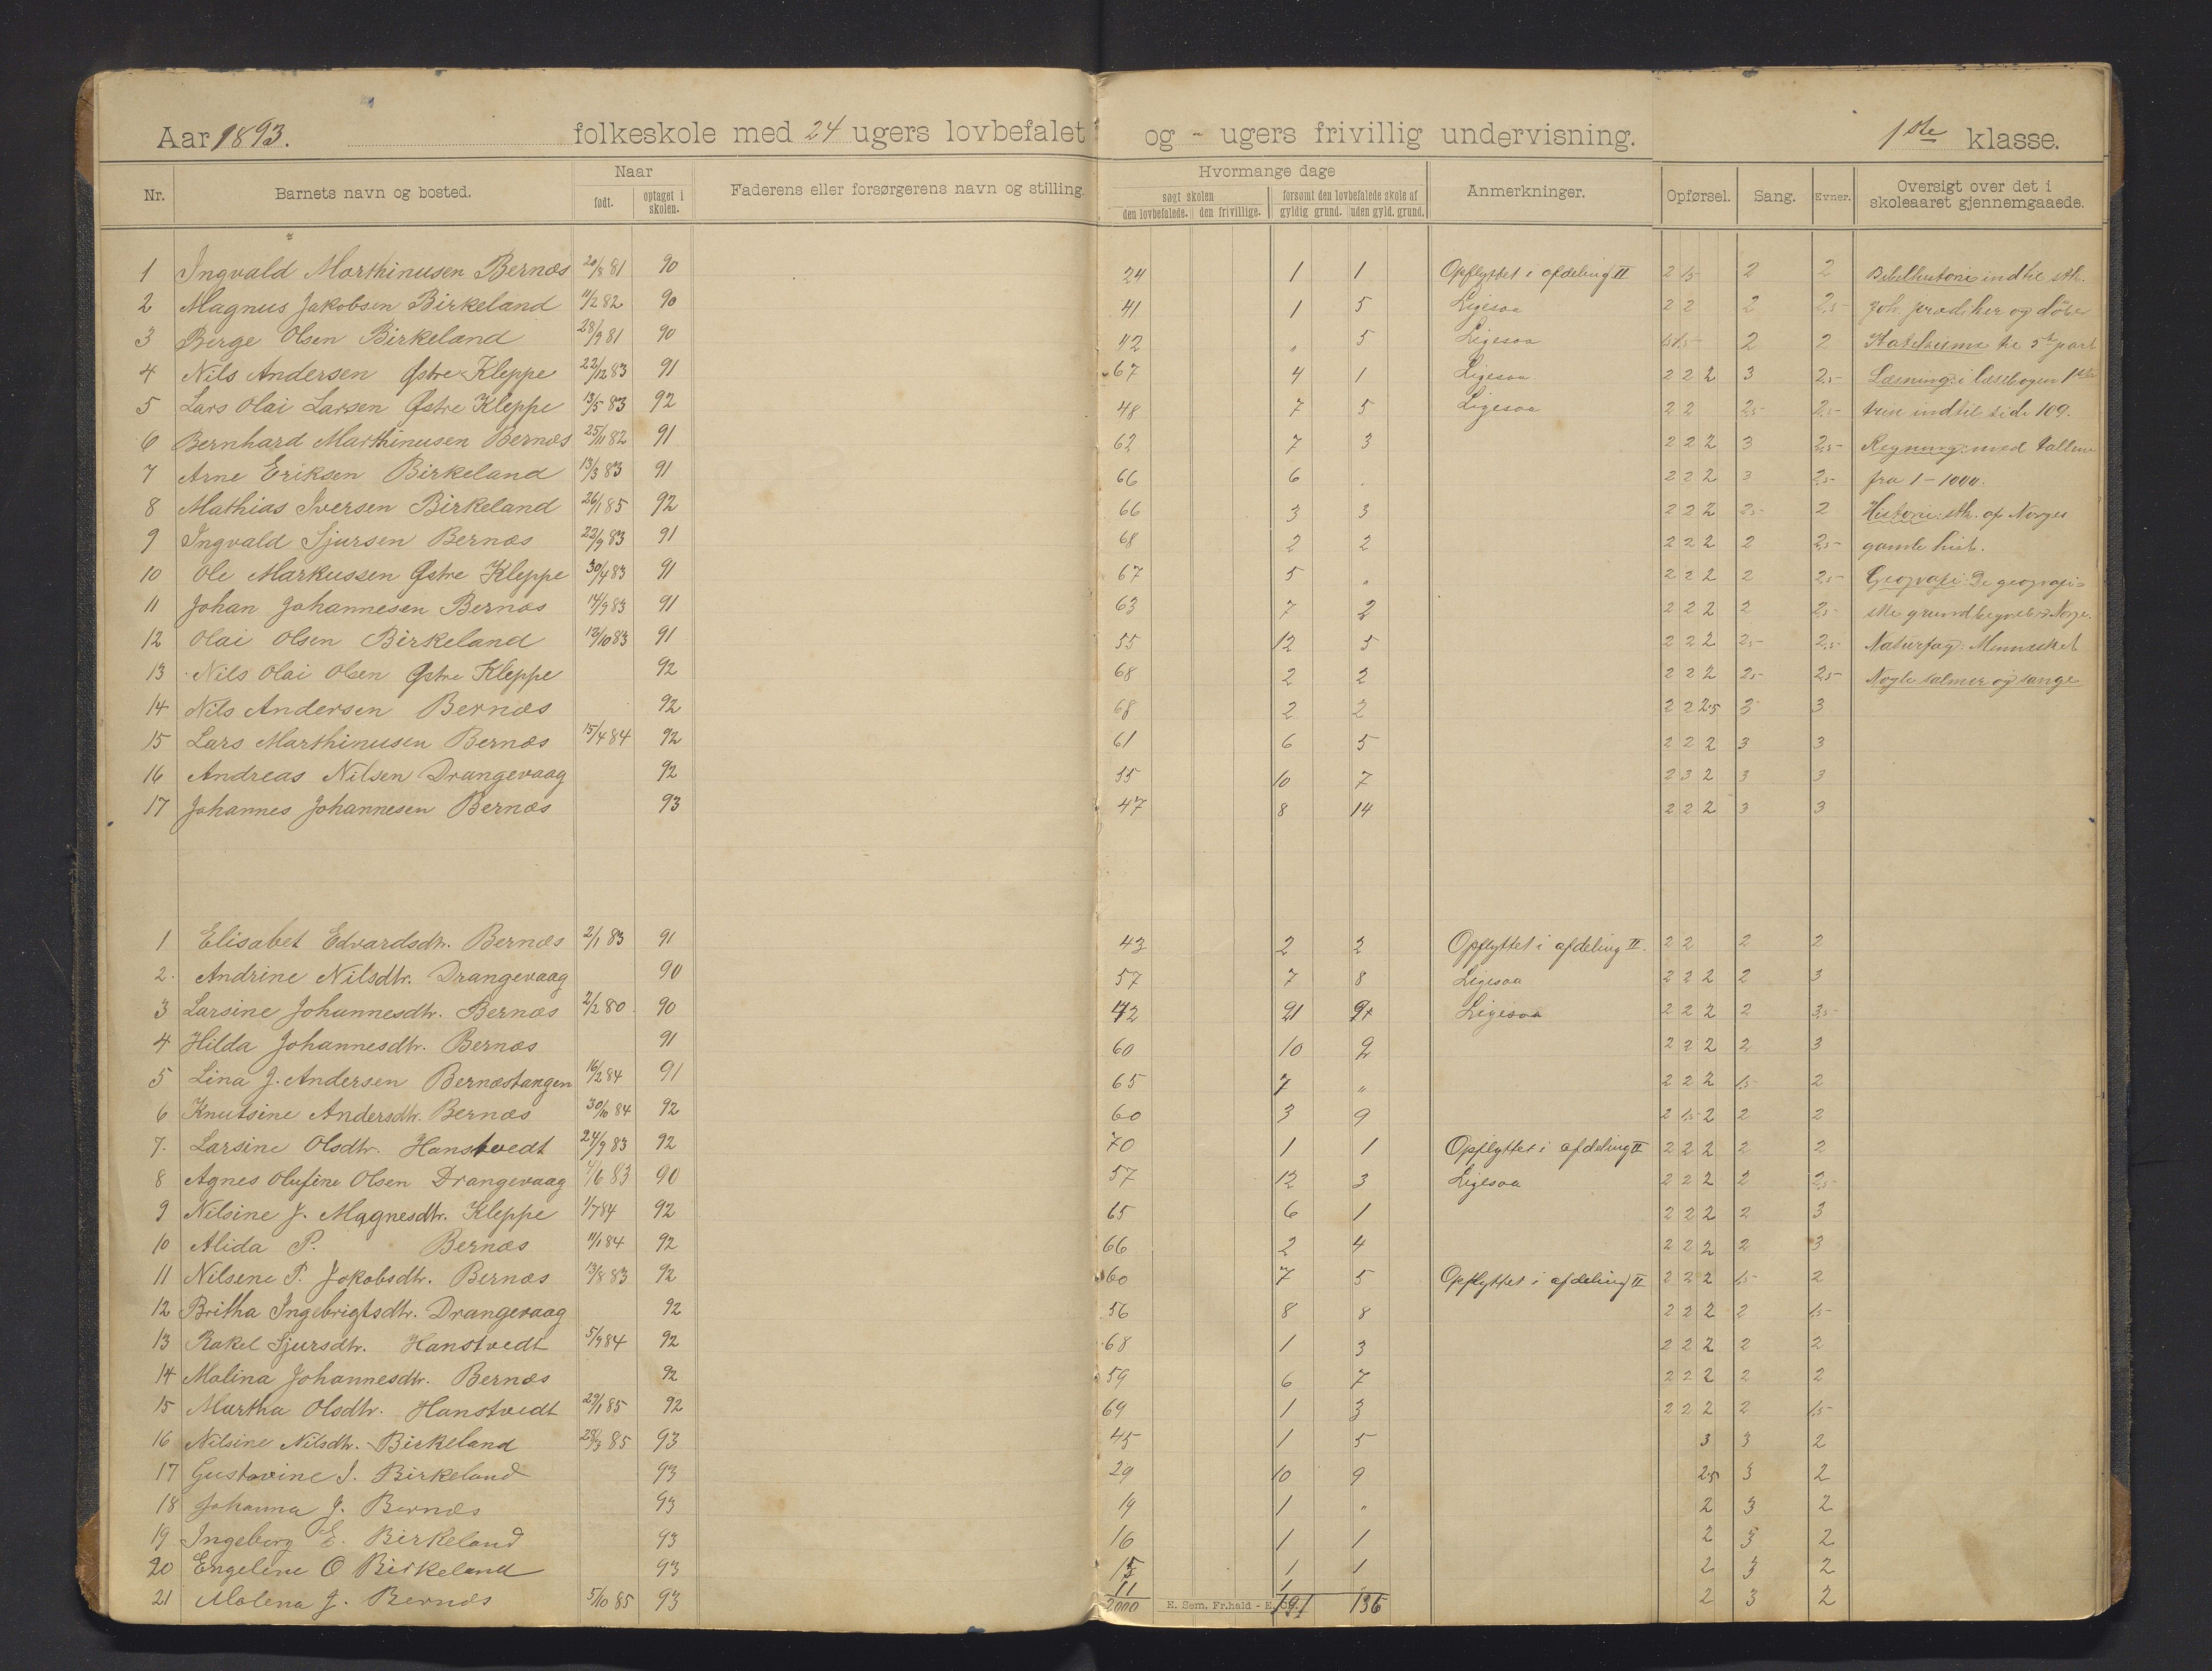 Aar 1893. folkeskole med 24 ugers lovbefalet og - ugers frivillig undervisning. 1ste klasse.
Nr. Barnets navn og bosted. Naar født. optaget i skolen. Faderens eller forsørgerens navn og stilling. Hvormange dage søgt skolen den lovbefalede. den frivillige. forsømt den lovbefalede skole af gyldig grund. uden gyld. grund. Anmerkninger. Opførsel. Sang. Evner. Oversigt over det i skoleaaret gjennemgaaede.
1 Ingvald Marthinusen Bernæs 20/8 81 90 24 1 1 Opflyttet i afdeling II 2 1,5 2 2 Bibelhistorie indtil stk.
2 Magnus Jakobsen Birkeland 11/2 82 90 41 1 5 Ligesaa 2 2 2 2,5 Joh. prædiker og døber
3 Berge Olsen Birkeland 28/9 81 90 42 " 5 Ligesaa 1,5 1,5 2 2 til 5te part
4 Nils Andersen Østre Kleppe 22/12 83 91 67 4 1 Ligesaa 2 2 2 3 2,5 Læsning: i læsebogen 1ste
5 Lars Olai Larsen Østre Kleppe 13/5 83 92 48 7 5 Ligesaa 2 2 2,5 2,5 trin indtil side 109.
6 Bernhard Marthinusen Bernæs 25/11 82 91 62 7 3 2 2 2 3 2,5 Regning: med tallene
7 Arne Eriksen Birkeland 13/3 83 91 66 6 . 2 2 2 3 2,5 fra 1-1000.
8 Mathias Iversen Birkeland 26/1 85 92 66 3 3 2 2 2 2,5 2 Historie: stk. af Norges
9 Ingvald Sjursen Bernæs 22/9 83 91 68 2 2 2 2 2 2 2,5 gamle hist.
10 Ole Markussen Østre Kleppe 30/4 83 91 67 5 " 2 2 2 2 2,5 Geografi: De geografi-
11 Johan Johannesen Bernæs 14/9 83 91 63 7 2 2 2 2 2 2,5 ske grundbegreb. Norge.
12 Olai Olsen Birkeland 12/10 83 91 55 12 5 2 2 2 2,5 2,5 Naturfag: Mennesket
13 Nils Olai Olsen Østre Kleppe 92 68 2 2 2 2 2 2,5 2,5 Nogle salmer og sange
14 Nils Andersen Bernæs 92 68 2 2 2 2 2,5 3 3
15 Lars Marthinusen Bernæs 15/4 84 92 61 6 5 2 2 2 3 3
16 Andreas Nilsen Drangevaag 92 55 10 7 2 3 2 3 3
17 Johannes Johannesen Bernæs 93 47 8 14 2 2 2 3 3
1 Elisabet Edvardsdtr. Bernæs 2/1 83 91 43 2 2 Opflyttet i afdeling II. 2 2 2 2
2. Andrine Nilsdtr. Drangevaag 90 57 7 8 Ligesaa 2 2 2 2 3
3 Larsine Johannesdtr. Bernæs 2/2 80 90 42 21 Ligesaa 2 2 2 2 3,5
4 Hilda Johannesdtr. Bernæs 91 60 10 2 2 2 2 2 3
5 Lina J. Andersen Bernæstangen 16/2 84 91 65 7 " 2 2 2 1,5 2
6 Knutsine Andersdtr. Bernæs 30/10 84 92 60 3 9 2 1,5 2 2 2
7. Larsine Olsdtr. Hanstvedt 24/9 83 92 70 1 1 Opflyttet i afdeling II 2 2 2 2 2
8 Agnes Olufine Olsen Drangevaag 4/6 83 90 57 12 3 Ligesaa 2 2 2 2 2,5
9 Nilsine J. Magnesdtr. Kleppe 1/7 84 92 65 6 1 2 2 2 2 3
10 Alida P. Bernæs 11/1 84 92 66 2 4 2 2 2 2 3
11 Nilsene P. Jakobsdtr. Bernæs 13/8 83 92 60 7 5 Opflyttet i afdeling II 2 2 2 1,5 2
12 Britha Ingebrigtsdtr. Drangevaag 92 56 8 8 2 2 2 2 1,5
13 Rakel Sjursdtr. Hanstvedt 5/9 84 92 68 1 3 2 2 2 2 2
14 Malina Johannesdtr. Bernæs 92 59 6 7 2 2 2 2 2
15 Martha Olsdtr. Hanstvedt 29/1 85 92 69 1 3 2 2 2 2 1,5
16 Nilsine Nilsdtr. Birkeland 28/3 85 93 45 1 5 3 3 2
17 Gustavine I. Birkeland 93 29 10 9 2,5 3 2
18 Johanna J. Bernæs 93 19 1 " 2 3 2
19 Ingeborg E. Birkeland 93 16 1 1 2 3 2
20 Engeline O Birkeland 93 15 1 1 2 3 2
21 Malena J. Bernæs 5/10 85 93 11 1 2 3 2
2000 E. Sem. Fr.hald - 191 136